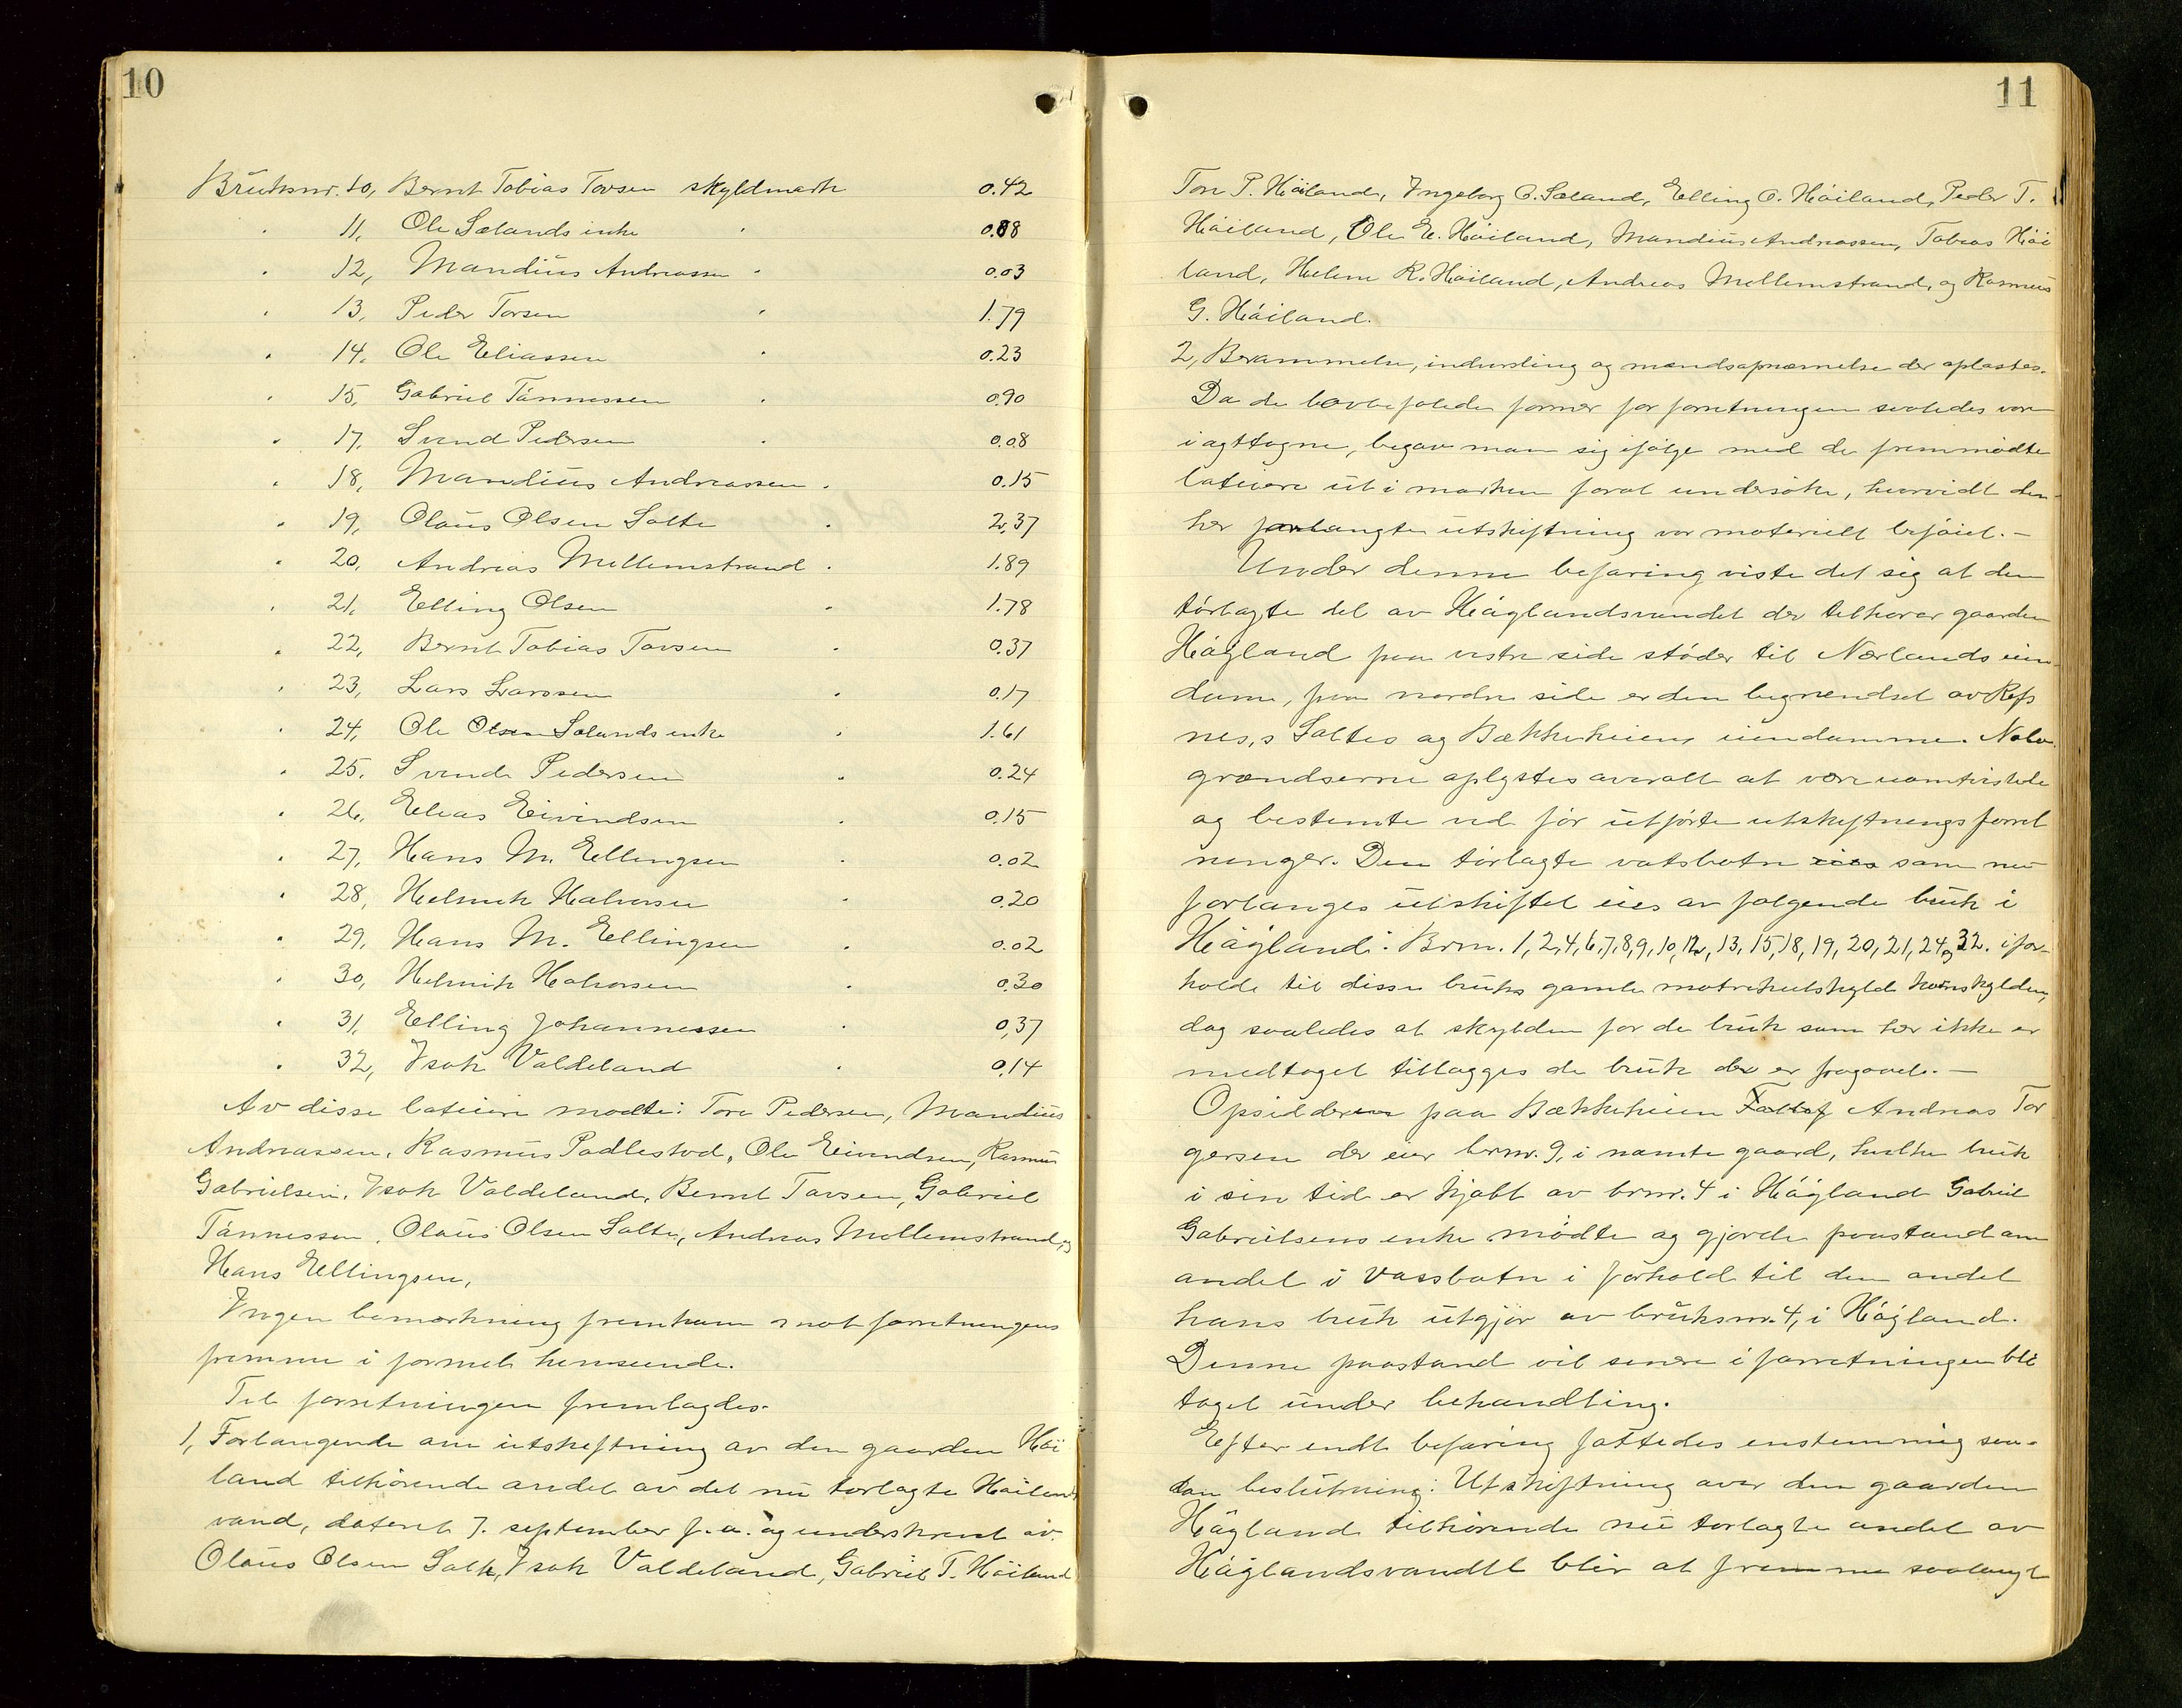 10
Bruksnr. 10, Bernt Tobias Torsen skyldmark 0.42
" 11, Ole Sælands enke " 0.08
" 12, Mandius Andreassen " 0.03
" 13, Peder Torsen " 1.79
" 14, Ole Eliassen " 0.23
" 15, Gabriel Tønnessen " 0.90
" 17, Svend Pedersen " 0.08
" 18, Mandius Andreassen " 0.15
" 19, Olaus Olsen Salte " 2,37
" 20, Andreas Mellemstrand " 1.89
" 21, Elling Olsen " 1.78
" 22, Bernt Tobias Torsen " 0.37
" 23, Lars Larssen " 0.17
" 24, Ole Olsen Sælands enke " 1.61
" 25, Svend Pedersen " 0.24
" 26, Elias Eivindsen " 0.15
" 27, Hans M. Ellingsen " 0.02
" 28, Helmik Halvorsen " 0.20
" 29, Hans M. Ellingsen " 0.02
" 30, Helmik Halvorsen " 0.30
" 31, Elling Johannessen " 0,37
" 32, Isak Valdeland " 0.14
Av disse lateiere mødte: Tore Pedersen, Mandius
Andreassen, Rasmus Podlestad, Ole Eivindsen, Rasmus
Gabrielsen, Isak Valdeland, Bernt Torsen, Gabriel
Tønnessen, Olaus Olsen Salte, Andreas Mellemstrand, og
Hans Ellingsen,
Ingen bemerkning fremkom mot forretningens
fremme i formel henseende.
Til forretningen fremlagdes.
1, Forlangende om utskiftning av den gaarden Høi
land tilhørende andel av det nu tørlagte Høilands
vand, dateret 7. september f. a. og underskrevet av
Olaus Olsen Salte, Isak Valdeland, Gabriel T. Høiland
11
Tore P. Høiland, Ingeborg O. Sæland, Elling O. Høiland, Peder T.
Høiland, Ole E. Høiland, Mandius Andreassen, Tobias Høi
land, Helene R. Høiland, Andreas Mellemstrand, og Rasmus
G. Høiland.
2, Berammelse, indvarsling og mandsopnævnelse der oplæstes.
Da de lovbefalede former for forretningen saaledes vare
iagttagne, begav man sig ifølge med de fremmødte
lateiere ut i marken forat undersøke, hvorvidt den
her forlangte utskiftning var materielt beføiet. -
Under denne befaring viste det sig at den
tørlagte del av Høglandsvandet der tilhører gaarden
Høgland paa vestre side støder til Nærlands eien
domme, paa nordre side er den begrændset av Refs
nes,s Saltes og Bækkeheiens eiendomme. Nabo
grændserne oplystes overalt at være uomtvistede
og bestemte ved før utførte utskiftningsforret
ninger. Den tørlagte vatsbotn eies som nu
forlanges utskiftet eies av følgende bruk i
Høgland: Brnr. 1, 2, 4, 6, 7, 8, 9, 10, 12, 13, 15, 18, 19, 20, 21, 24, og 32. i for-
hold til disse bruks gamle matrikulskyld
dog saaledes at skylden for de bruk som her ikke er
medtaget tillægges de bruk de er fragaaet. -
Opsidderen paa Bækkeheien Andreas Tor
gersen der eier brnr. 9, i nævnte gaard, hvilke bruk
i sin tid er kjøbt av brnr. 4 i Høgland Gabriel
Gabrielsens enke mødte og gjorde paastand om
andel i vassbotn i forhold til den andel
hans bruk utgjør av bruksnr. 4, i Høgland.
Denne paastand vil senere i forretningen bli
taget under behandling.
Efter endt befaring fattedes enstemmig saa-
dan beslutning: Utskiftning over den gaarden
Høgland tilhørende nu tørlagte andel av
Høglandsvandet blir at fremme saalangt